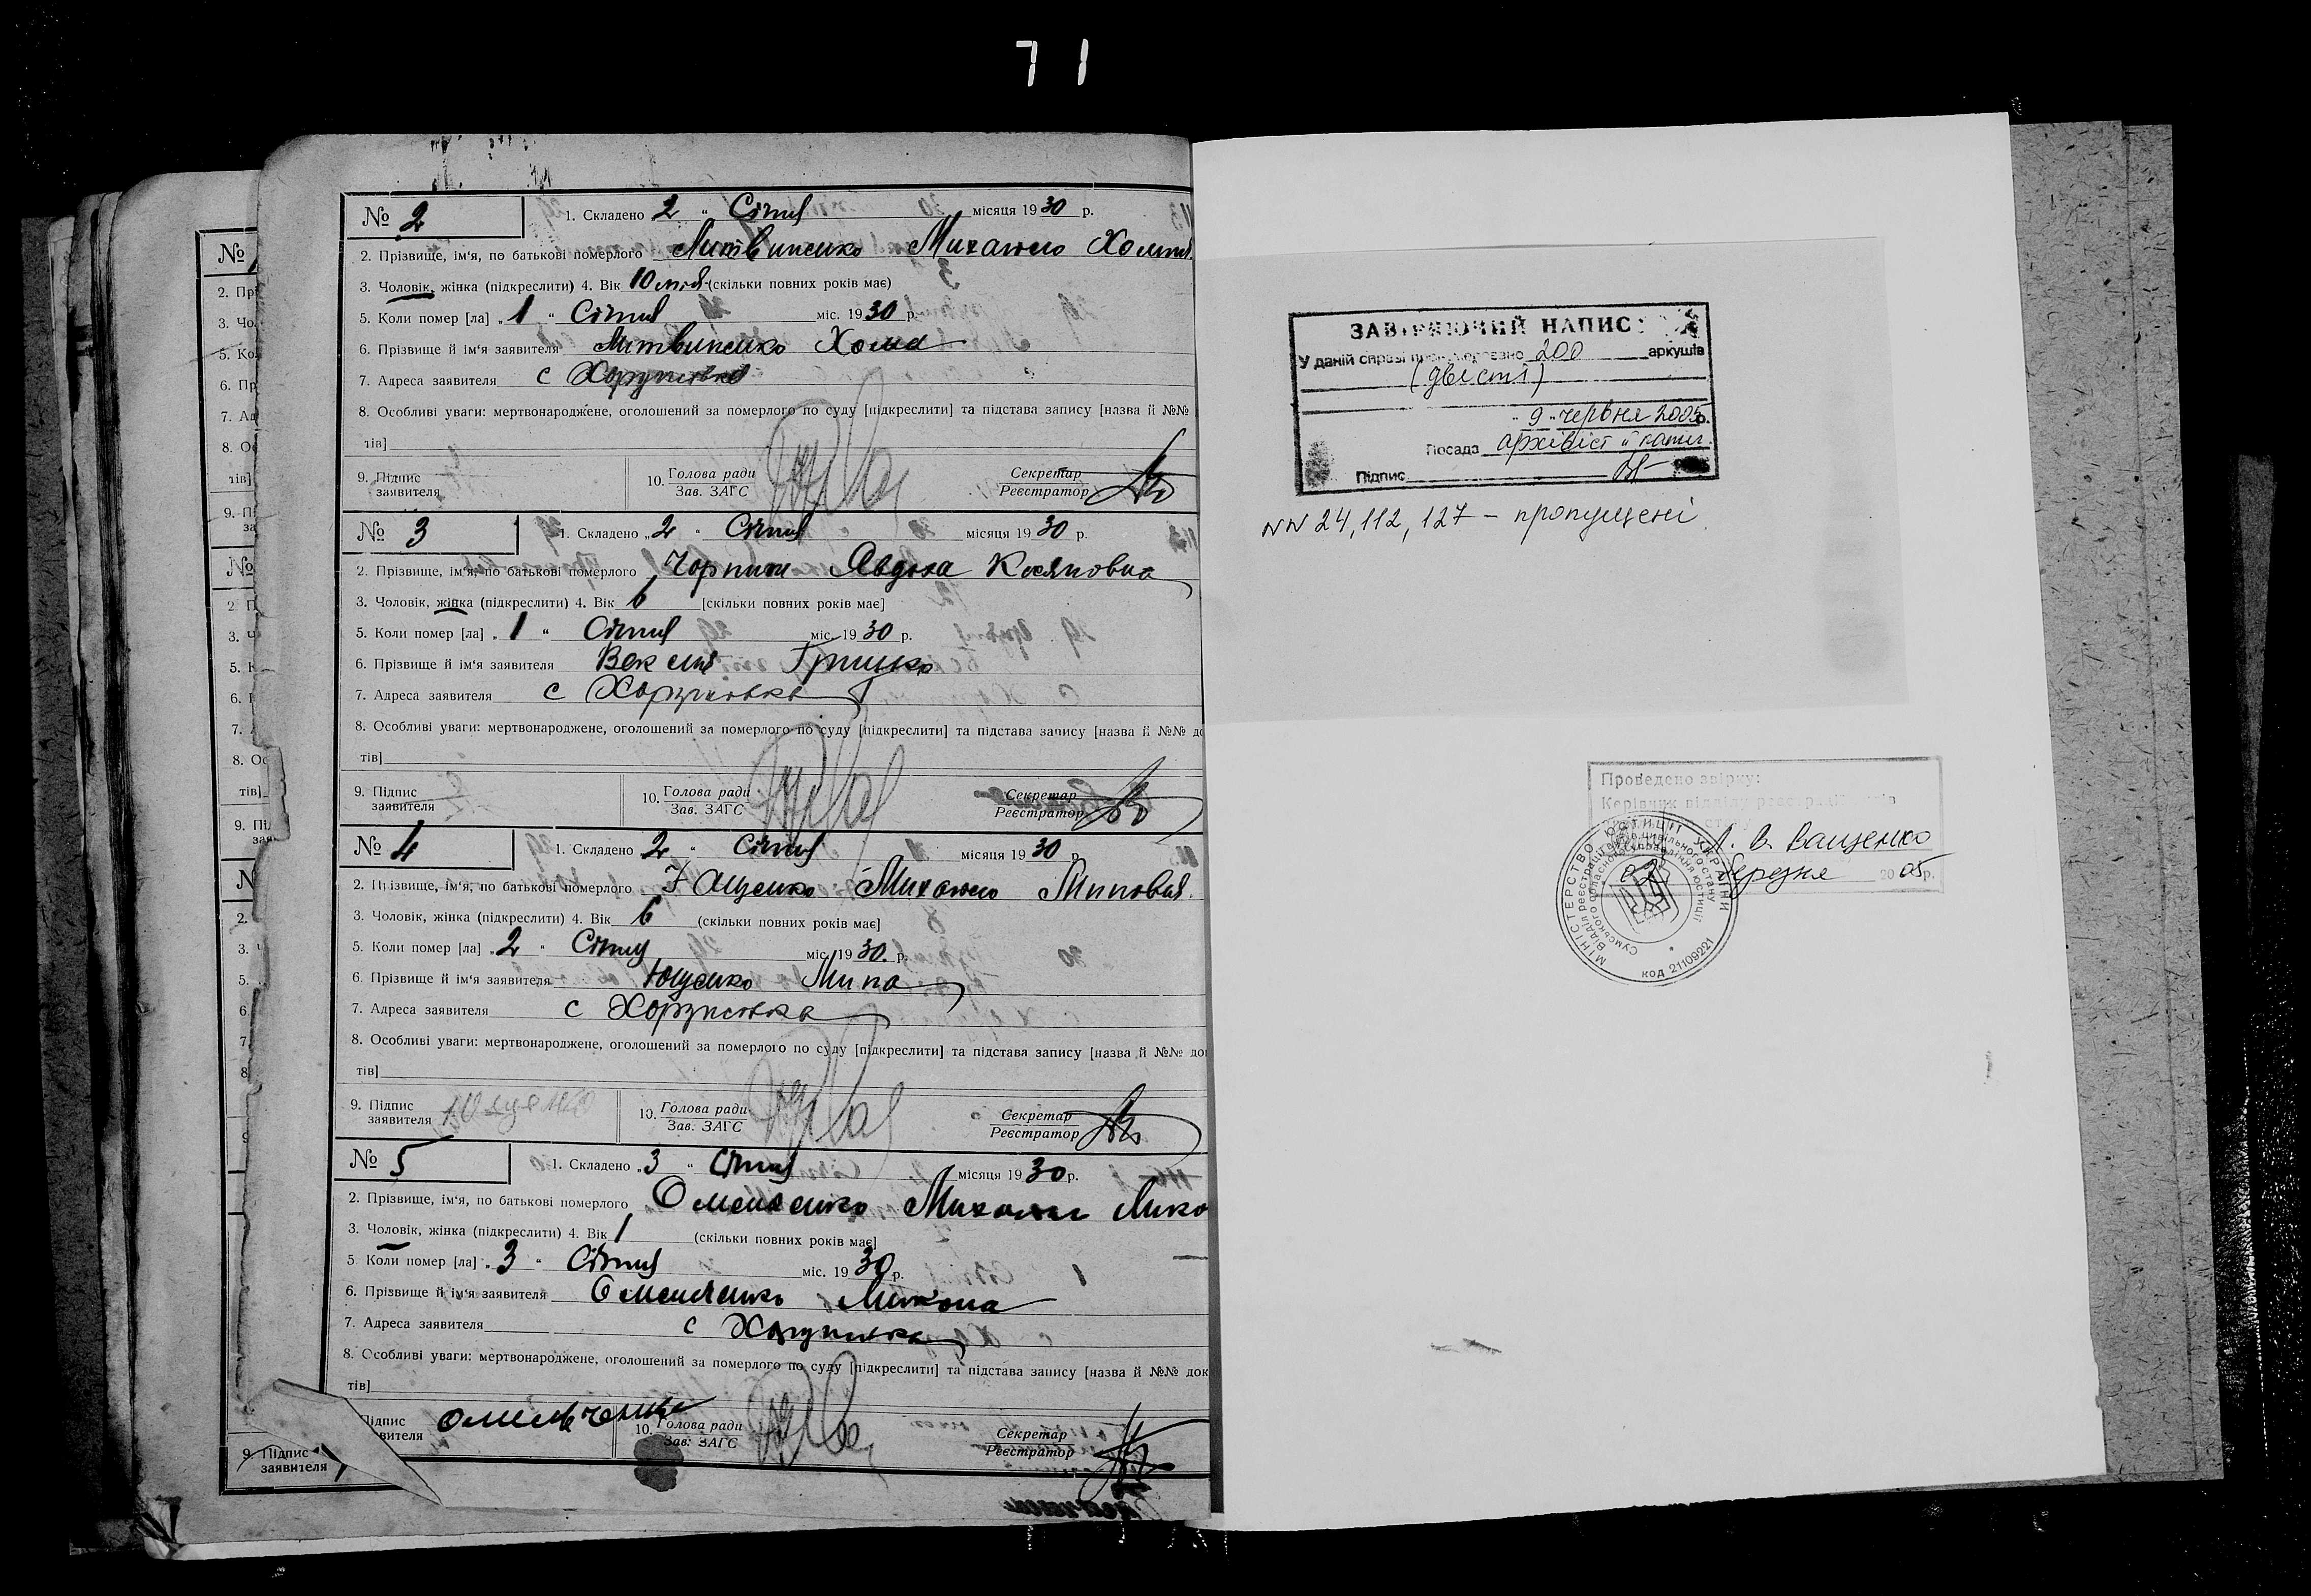 71
№ 2 1. Складено 2 " Січня місяця 1930 р.
2. Прізвище, ім'я, по батькові померлого Литвиненко Михайло Хомич
3. Чоловік, жінка (підкреслити) 4. Вік 10 (скільки повних років має)
5. Коли помер [ла] „ 1 " Січня міс. 1930 р.
6. Прізвище й ім'я заявителя Литвиненко Хома
7. Адреса заявителя с Хоружівка
8. Особливі уваги: мертвонароджене, оголошений за померлого по суду [підкреслити] та підстава запису [назва й №№
тів]
9. Підпис заявителя 10. Голова ради Зав. ЗАГС Секретар Реєстратор
№ 3 1. Складено „ 2 " Січня місяця 1930 р.
2. Прізвище, ім'я, по батькові померлого Явдоха
3. Чоловік, жінка (підкреслити) 4. Вік 6 [скільки повних років має]
5. Коли помер [ла] „ 1 " Січня міс. 1930 р.
6. Прізвище й ім'я заявителя Грицько
7. Адреса заявителя с Хоружівка
8. Особливі уваги: мертвонароджене, оголошений за померлого по суду [підкреслити] та підстава запису [назва й №№ до
тів]
9. Підпис заявителя 10. Голова ради Зав. ЗАГС Секретар Реєстратор
№ 4 1. Складено 2 " Січня місяця 1930 р.
2. Прізвище, ім'я, по батькові померлого Ющенко Михайло Минович
3. Чоловік, жінка (підкреслити) 4. Вік 6 (скільки повних років має]
5. Коли помер [ла] „ 2 " Січня міс. 1930. р.
6. Прізвище й ім'я заявителя Ющенко Мина
7. Адреса заявителя с Хоружівка
8. Особливі уваги: мертвонароджене, оголошений за померлого по суду [підкреслити] та підстава запису [назва й №№ до
тів]
9. Підпис заявителя Ющенко 10. Голова ради Зав. ЗАГС Секретар Реєстратор
№ 5 1. Складено „ 3 " Січня місяця 1930 р.
2. Прізвище, ім'я, по батькові померлого Омельченко Мико
3. Чоловік, жінка (підкреслити) 4. Вік 1 (скільки повних років має]
5 Коли помер [ла] „ 3 " Січня міс. 1930 р.
6. Прізвище й ім'я заявителя Омельченко Микола
7. Адреса заявителя с Хоружівка
8. Особливі уваги: мертвонароджене, оголошений за померлого по суду [підкреслити] та підстава запису [назва й №№ док
тів]
Підпис вителя Омельченко 10. Голова ради Зав. ЗАГС Секретар Реєстратор
9. Підпис заявителя
ЗАВІРЯЮЧИЙ НАПИС:
У даній справі 200 аркушів
(двісті)
„ 9 " червня 2005 р.
Посада архівіст
Підпис
NN 24, 112, 127 – пропущені.
Проведено звірку:
Керівник відділу реєстрації
Л. В. Ващенко
02 березня 2005 р.
МІНІСТЕРСТВО ЮСТИЦІЇ УКРАЇНИ
Відділ реєстрації актів цивільного стану
Сумського обласного управління юстиції
код 21109221